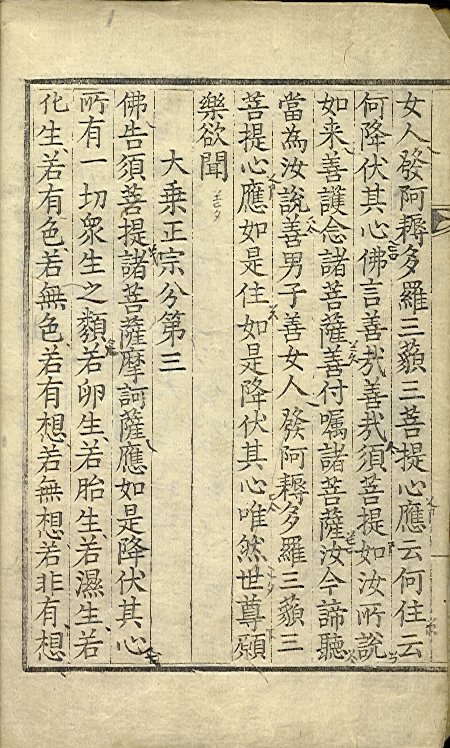 女人發阿耨多羅三藐三菩提心應云何住云
何降伏其心佛言善㢤善㢤須菩提如汝所說
如来善護念諸菩薩善付囑諸菩薩汝今諦聽
當為汝說善男子善女人發阿耨多羅三藐三
菩提心應如是住如是降伏其心唯然世尊願
樂欲聞
大乗正宗分第三
佛告須菩提諸菩薩摩訶薩應如是降伏其心
所有一切衆生之類若卵生若胎生若濕生若
化生若有色若無色若有想若無想若非有想